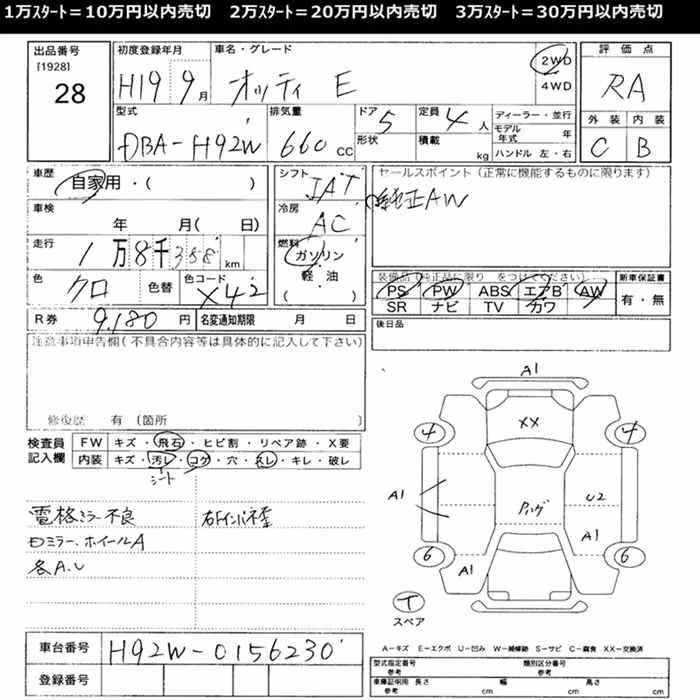 1万ｽﾀｰﾄ＝10万円以内売切　2万ｽﾀｰﾄ＝20万円以内売切　3万ｽﾀｰﾄ＝30万円以内売切
出品番号
[1928]
28
初度登録年月
H19 9月
車名・グレード
オッティ E
2WD
4WD
評価点
RA
外装 内装
C B
型式
DBA-H92W
排気量
660 cc
ドア
5
形状
定員
4人
積載
kg
ディーラー・並行
モデル年式 年
ハンドル 左・右
車歴
自家用・( )
車検
年 月( 日)
走行
1万8千358km
色
クロ
色替
色コード
X42
シフト
IAT
冷房
AC
燃料
ガソリン
軽・油
( )
セールスポイント(正常に機能するものに限ります)
純正AW
装備品(純正品に限り をつけてください)
PS PW ABS エアB AW
SR ナビ TV カワ
新車保証書
有・無
R券 9,180円
名変通知期限 月 日
後日品
注意事項申告欄(不具合内容等は具体的に記入して下さい)
修復歴 有 (箇所
検査員
記入欄
FW キズ・飛石・ヒビ割・リペア跡・X要
内装 キズ・汚レ・コゲ・穴・スレ・キレ・破レ
シート
電格ミラー不良
ミラー、ホイールA
各A.U
A1
XX
4 4
A1
U2
A1
6 6
A1
T
スペア
車台番号
H92W-0156230
登録番号
A－キズ E－エクボ U－凹み W－補修跡 S－サビ C－腐食 XX－交換済
型式指定番号
参考
類別区分番号
参考
車庫証明用
参考
長さ cm
幅 cm
高さ cm